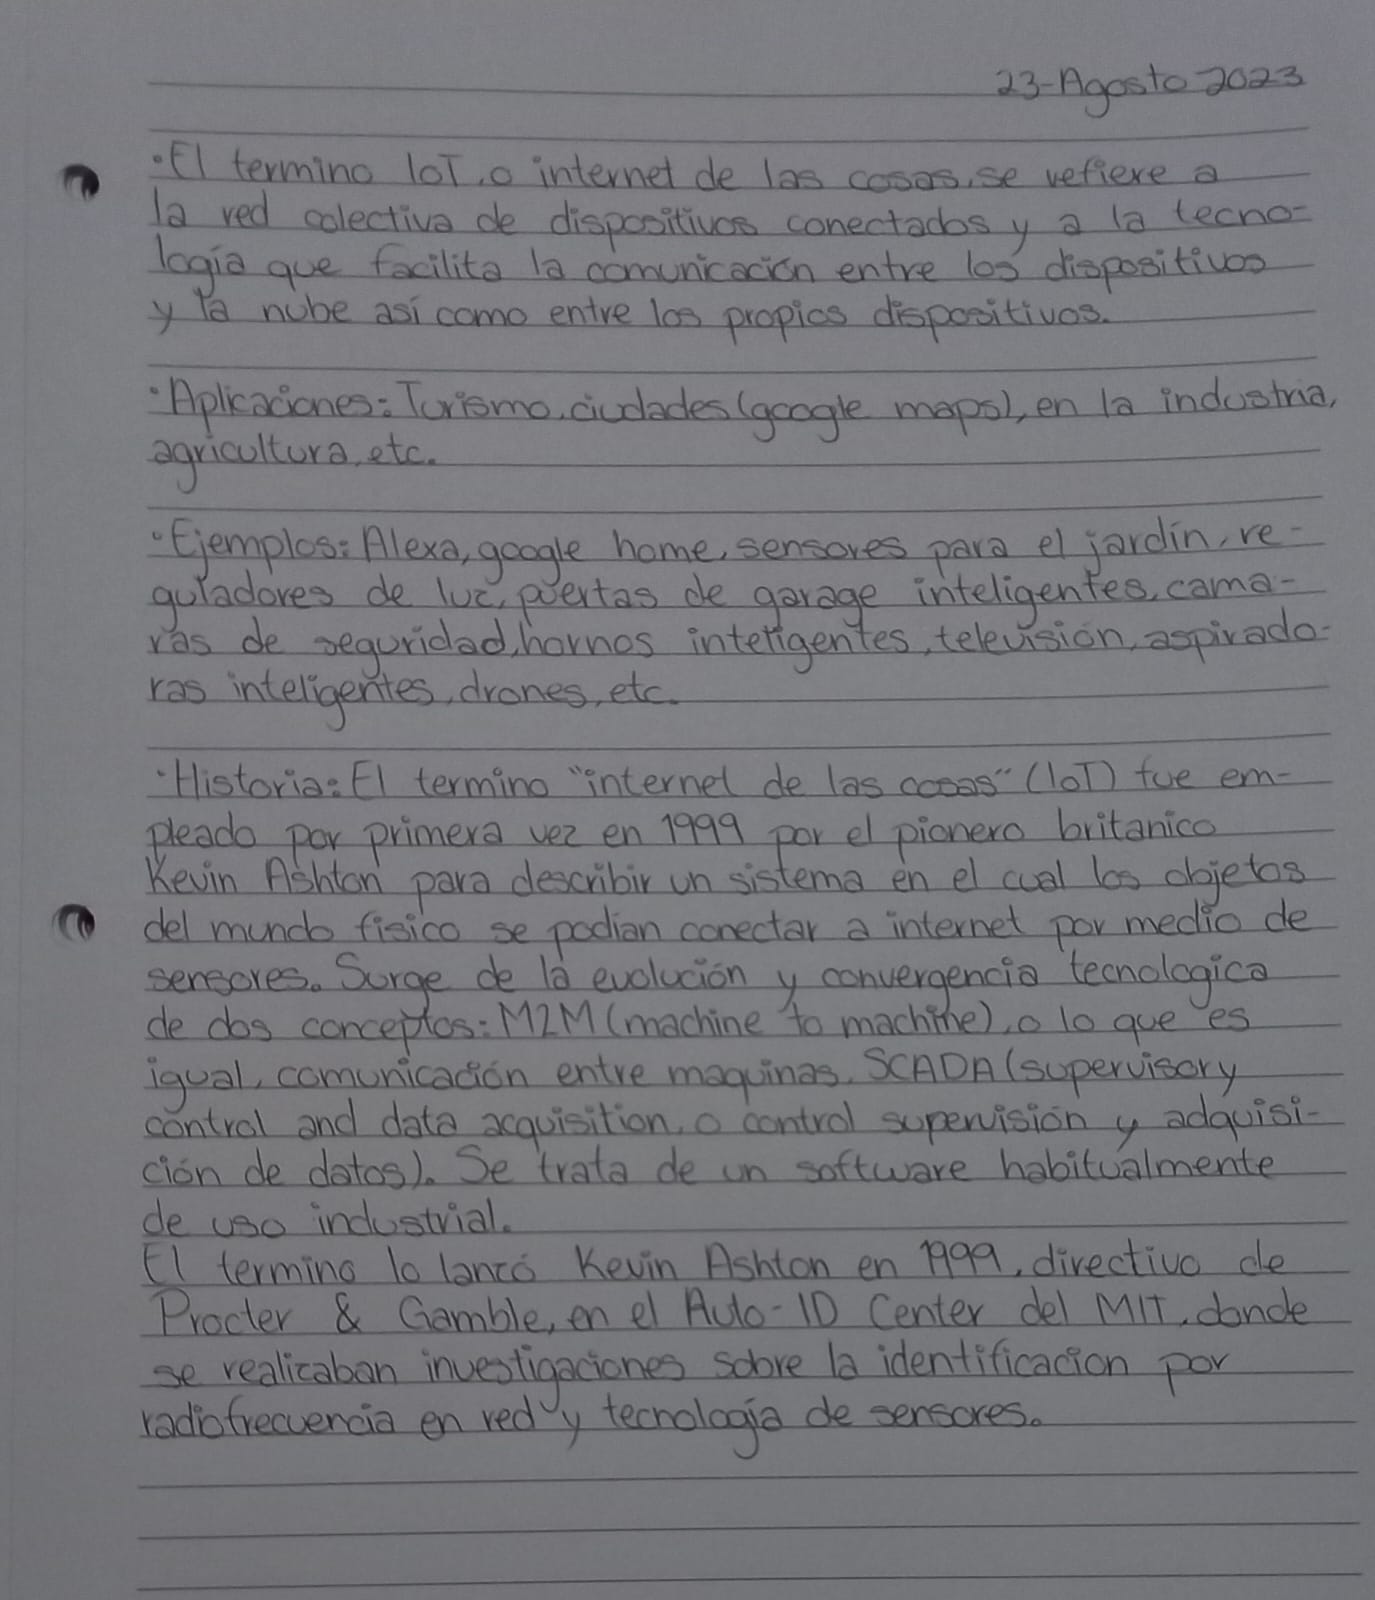 23-Agosto 2023
•El termino IoT, o internet de las cosas, se refiere a
la red colectiva de dispositivos conectados y a la tecno-
logía que facilita la comunicación entre los dispositivos
y la nube así como entre los propios dispositivos.
•Aplicaciones: Turismo, ciudades (google maps), en la industria,
agricultura, etc.
•Ejemplos: Alexa, google home, sensores para el jardín, re-
guladores de luz, puertas de garage inteligentes, cama-
ras de seguridad, hornos inteligentes, televisión, aspirado-
ras inteligentes, drones, etc.
•Historia: El termino "internet de las cosas" (IoT) fue em-
pleado por primera vez en 1999 por el pionero britanico
Kevin Ashton para describir un sistema en el cual los objetos
del mundo fisico se podian conectar a internet por medio de
sensores. Surge de la evolución y convergencia tecnologica
de dos conceptos: M2M (machine to machine), o lo que es
igual, comunicación entre maquinas, SCADA (supervisory
control and data acquisition, o control supervisión y adquisi-
ción de datos). Se trata de un software habitualmente
de uso industrial.
El termino lo lanzó Kevin Ashton en 1999, directivo de
Procter & Gamble, en el Auto-ID Center del MIT, donde
se realizaban investigaciones sobre la identificacion por
radiofrecuencia en red y tecnología de sensores.